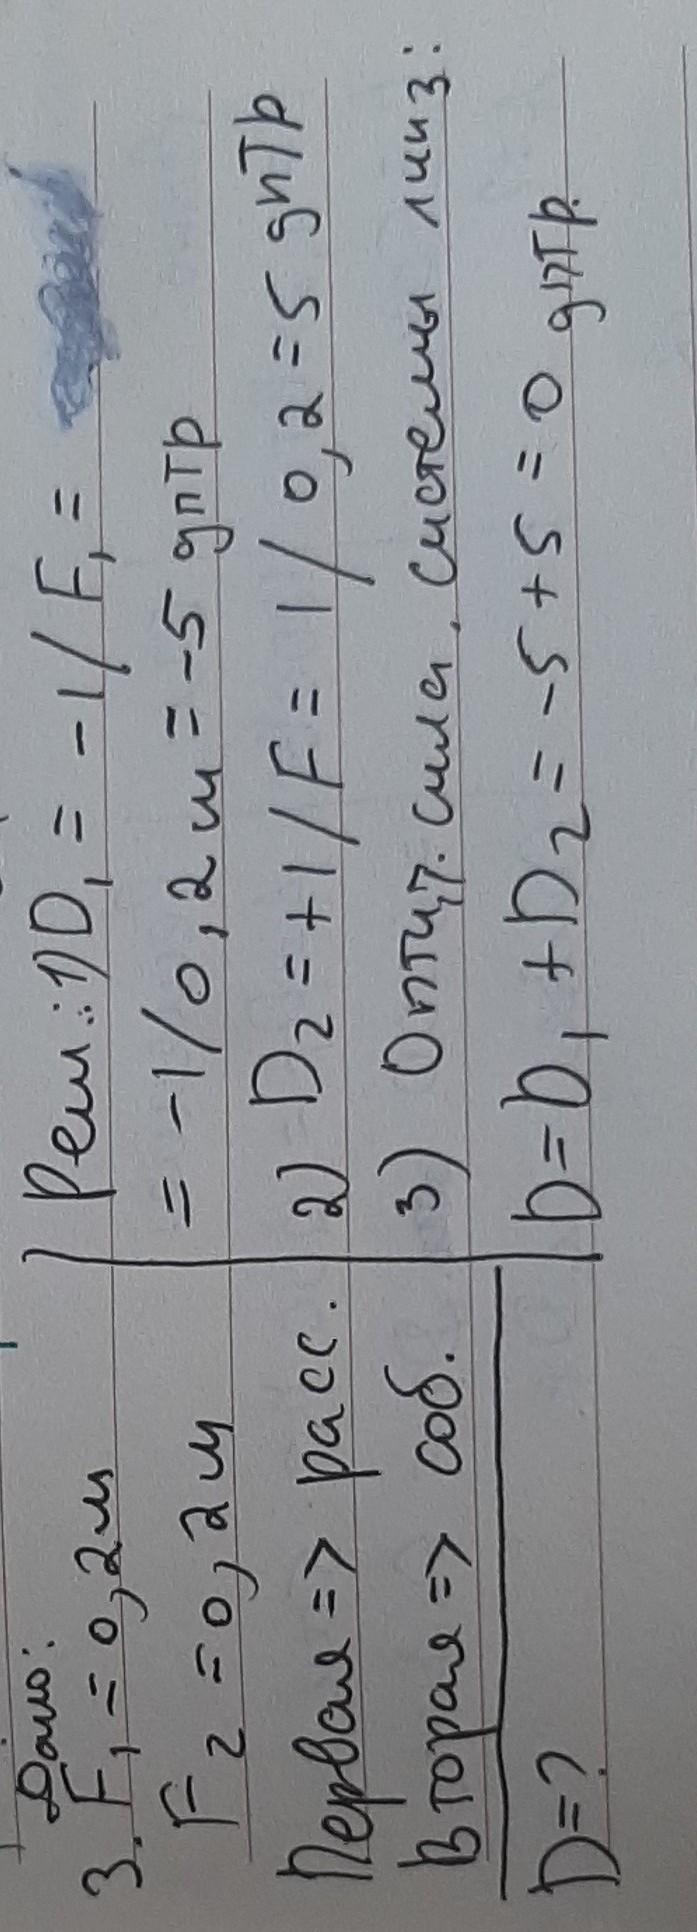 Дано:
3. F₁ = 0,2м
F₂ = 0,2м
Первая => расс.
Вторая => соб.
D=?
Реш.: 1) D₁ = -1/F₁ =
= -1/0,2м = -5 дптр
2) D₂ = +1/F = 1/0,2 = 5 дптр
3) Оптич. сила. системы линз:
D = D₁ + D₂ = -5 + 5 = 0 дптр.